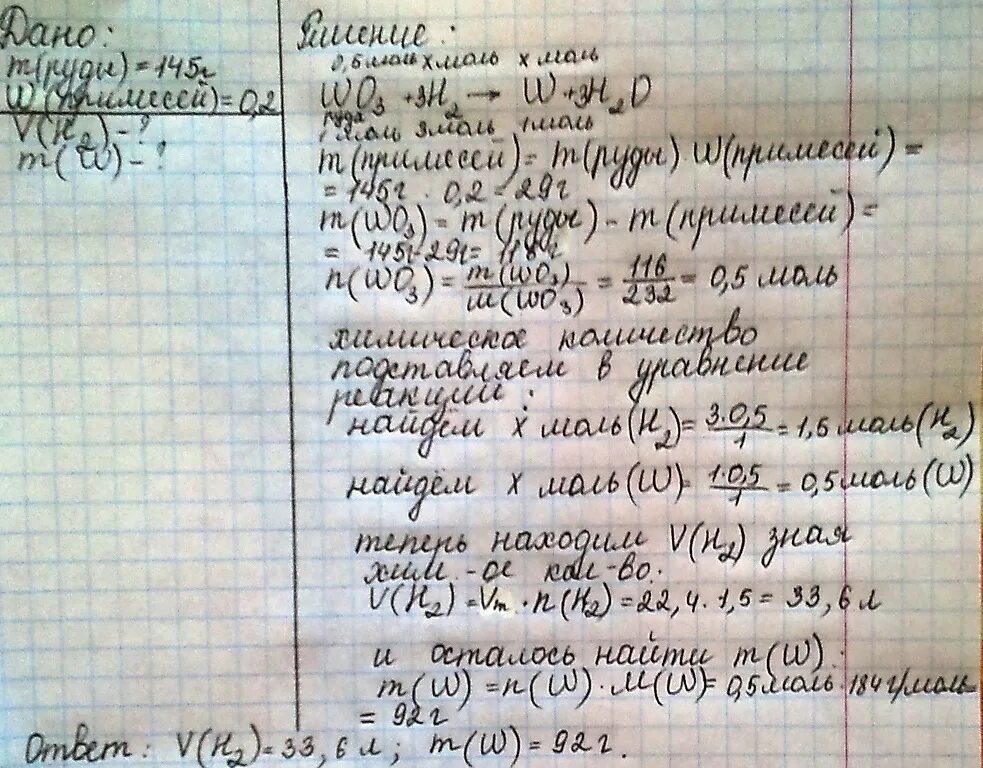 Дано:
m(руды) = 145г
W(примесей) = 0,2
V(H2) - ?
m(W) - ?
Решение:
0,5 моль x моль x моль
WO3 + 3H2 → W + 3H2O
руда
1 моль 3 моль 1 моль
m(примесей) = m(руды) W(примесей) =
= 145г · 0,2 = 29г
m(WO3) = m(руды) - m(примесей) =
= 145г - 29г = 116г
n(WO3) = m(WO3)/M(WO3) = 116/232 = 0,5 моль
химическое количество
подставляем в уравнение
реакции:
найдём x моль(H2) = 3·0,5/1 = 1,5 моль(H2)
найдём x моль(W) = 1·0,5/1 = 0,5 моль(W)
теперь находим V(H2) зная
хим-ое кол-во:
V(H2) = Vm · n(H2) = 22,4 · 1,5 = 33,6 л
и осталось найти m(W):
m(W) = n(W) · M(W) = 0,5 моль · 184 г/моль
= 92 г
Ответ: V(H2) = 33,6 л; m(W) = 92 г.